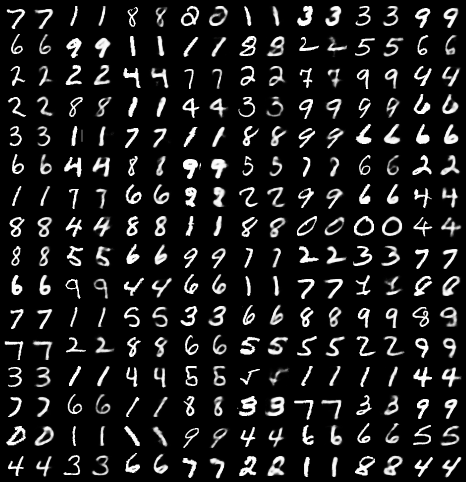 7 7 1 1 8 8 2 2 1 1 3 3 3 3 9 9
6 6 9 9 1 1 1 1 8 8 2 2 5 5 6 6
2 2 2 2 4 4 7 7 2 2 7 7 9 9 4 4
2 2 8 8 1 1 4 4 3 3 9 9 9 9 6 6
3 3 1 1 7 7 1 1 8 8 9 9 6 6 6 6
6 6 4 4 8 8 9 9 5 5 7 7 6 6 2 2
1 1 7 7 6 6 2 2 2 2 9 9 6 6 4 4
8 8 4 4 8 8 1 1 8 8 0 0 0 0 4 4
8 8 5 5 6 6 9 9 7 7 2 2 3 3 7 7
6 6 9 9 4 4 6 6 1 1 7 7 1 1 8 8
7 7 1 1 5 5 3 3 6 6 8 8 9 9 8 9
7 7 2 2 8 8 6 6 5 5 5 5 2 2 9 9
3 3 1 1 4 4 5 5 1 1 1 1 4 4
7 7 6 6 1 1 8 8 3 3 7 7 3 3 9 9
0 0 1 1 1 1 9 9 4 4 6 6 6 6 5 5
4 4 3 3 6 6 7 7 2 2 1 1 8 8 4 4